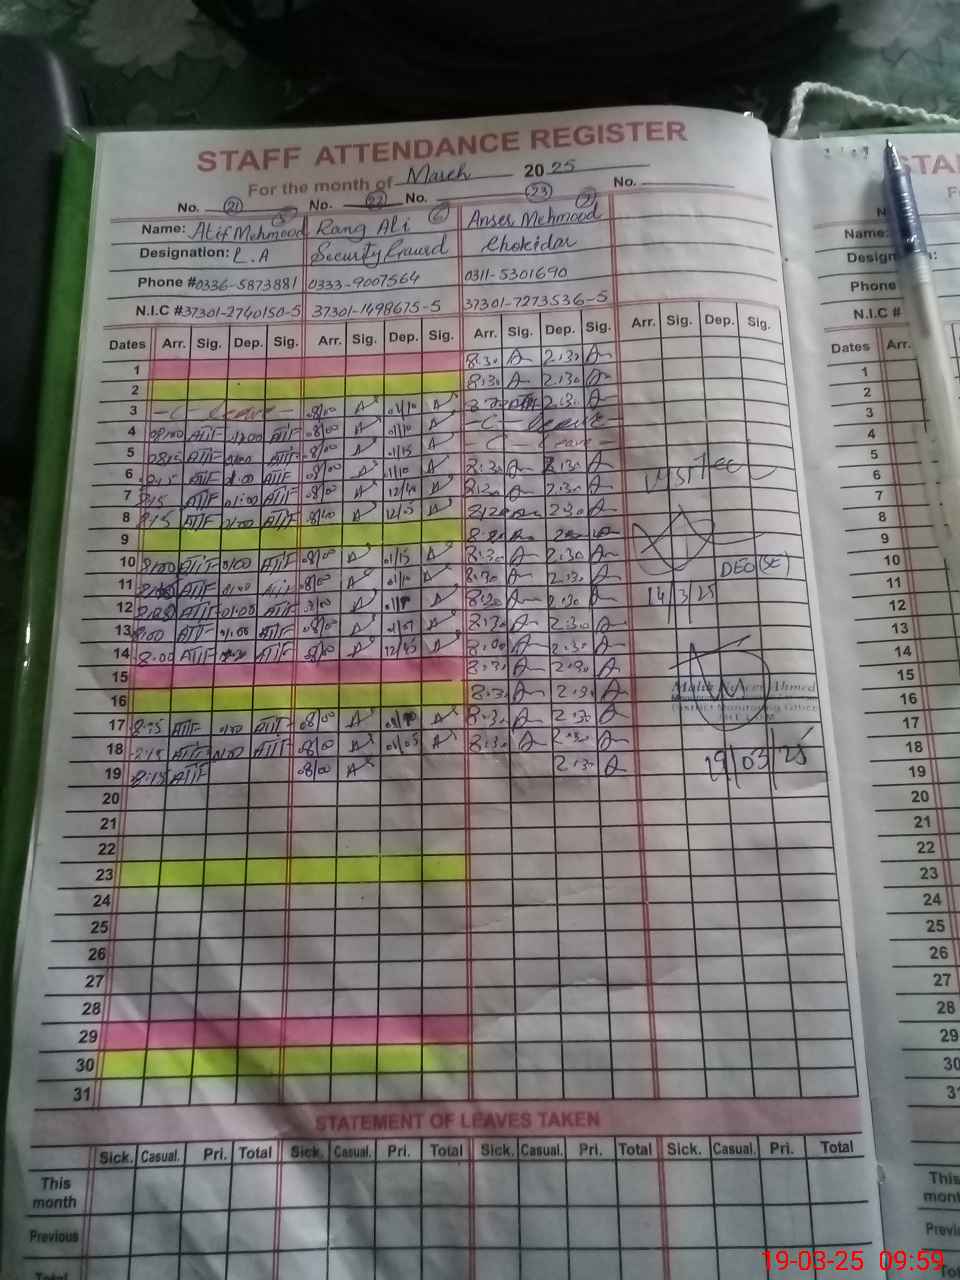 STAFF ATTENDANCE REGISTER
For the month of March 2025
No. 21 No. 22 No. 23 No.
Name: Atif Mehmood Rang Ali Anser Mehmood
Designation: L.A Security Guard Chokidar
Phone # 0336-5873881 0333-9007564 0311-5301690
N.I.C # 37301-2740150-5 37301-1498675-5 37301-7273536-5
Dates Arr. Sig. Dep. Sig. Arr. Sig. Dep. Sig. Arr. Sig. Dep. Sig. Arr. Sig. Dep. Sig.
1 8:30 2:30
2 8:30 2:30
3 -C- Leave- 08/00 01/10 2:30
4 08:00 ATIF ATIF 08/00 01/10 -C- Leave-
5 ATIF ATIF 08/00 01/15 -C- Leave-
6 8:15 ATIF 01:00 ATIF 08/00 01/10 8:30 2:30
7 8:15 ATIF 01:00 ATIF 08/00 12/40 2:30
8 8:15 ATIF ATIF 2:30
9
10 8:00 ATIF 01:00 ATIF 08/00 01/15 8:30 2:30
11 ATIF 01:00 08/00 01/10 8:30 2:30
12 ATIF 01:00 ATIF 08/00 8:30 2:30
13 8:00 ATIF 01:00 ATIF 08/00 8:30 2:30
14 8:00 ATIF ATIF 08/00 12/45 2:30
15 8:30 2:30
16 8:30 2:30
17 8:15 ATIF ATIF 08/00 8:30 2:30
18 ATIF ATIF 08/00 01/05 8:30 2:30
19 8:15 ATIF 08/00 2:30
20
21
22
23
24
25
26
27
28
29
30
31
Visited
DEO (SE)
14/3/25
Ahmed
District Monitoring Officer
JHELUM
19/03/25
STATEMENT OF LEAVES TAKEN
Sick. Casual. Pri. Total Sick. Casual. Pri. Total Sick. Casual. Pri. Total Sick. Casual. Pri. Total
This month
Previous
Total
Name:
Designation:
Phone
N.I.C #
Dates Arr.
1
2
3
4
5
6
7
8
9
10
11
12
13
14
15
16
17
18
19
20
21
22
23
24
25
26
27
28
29
30
This
19-03-25 09:59